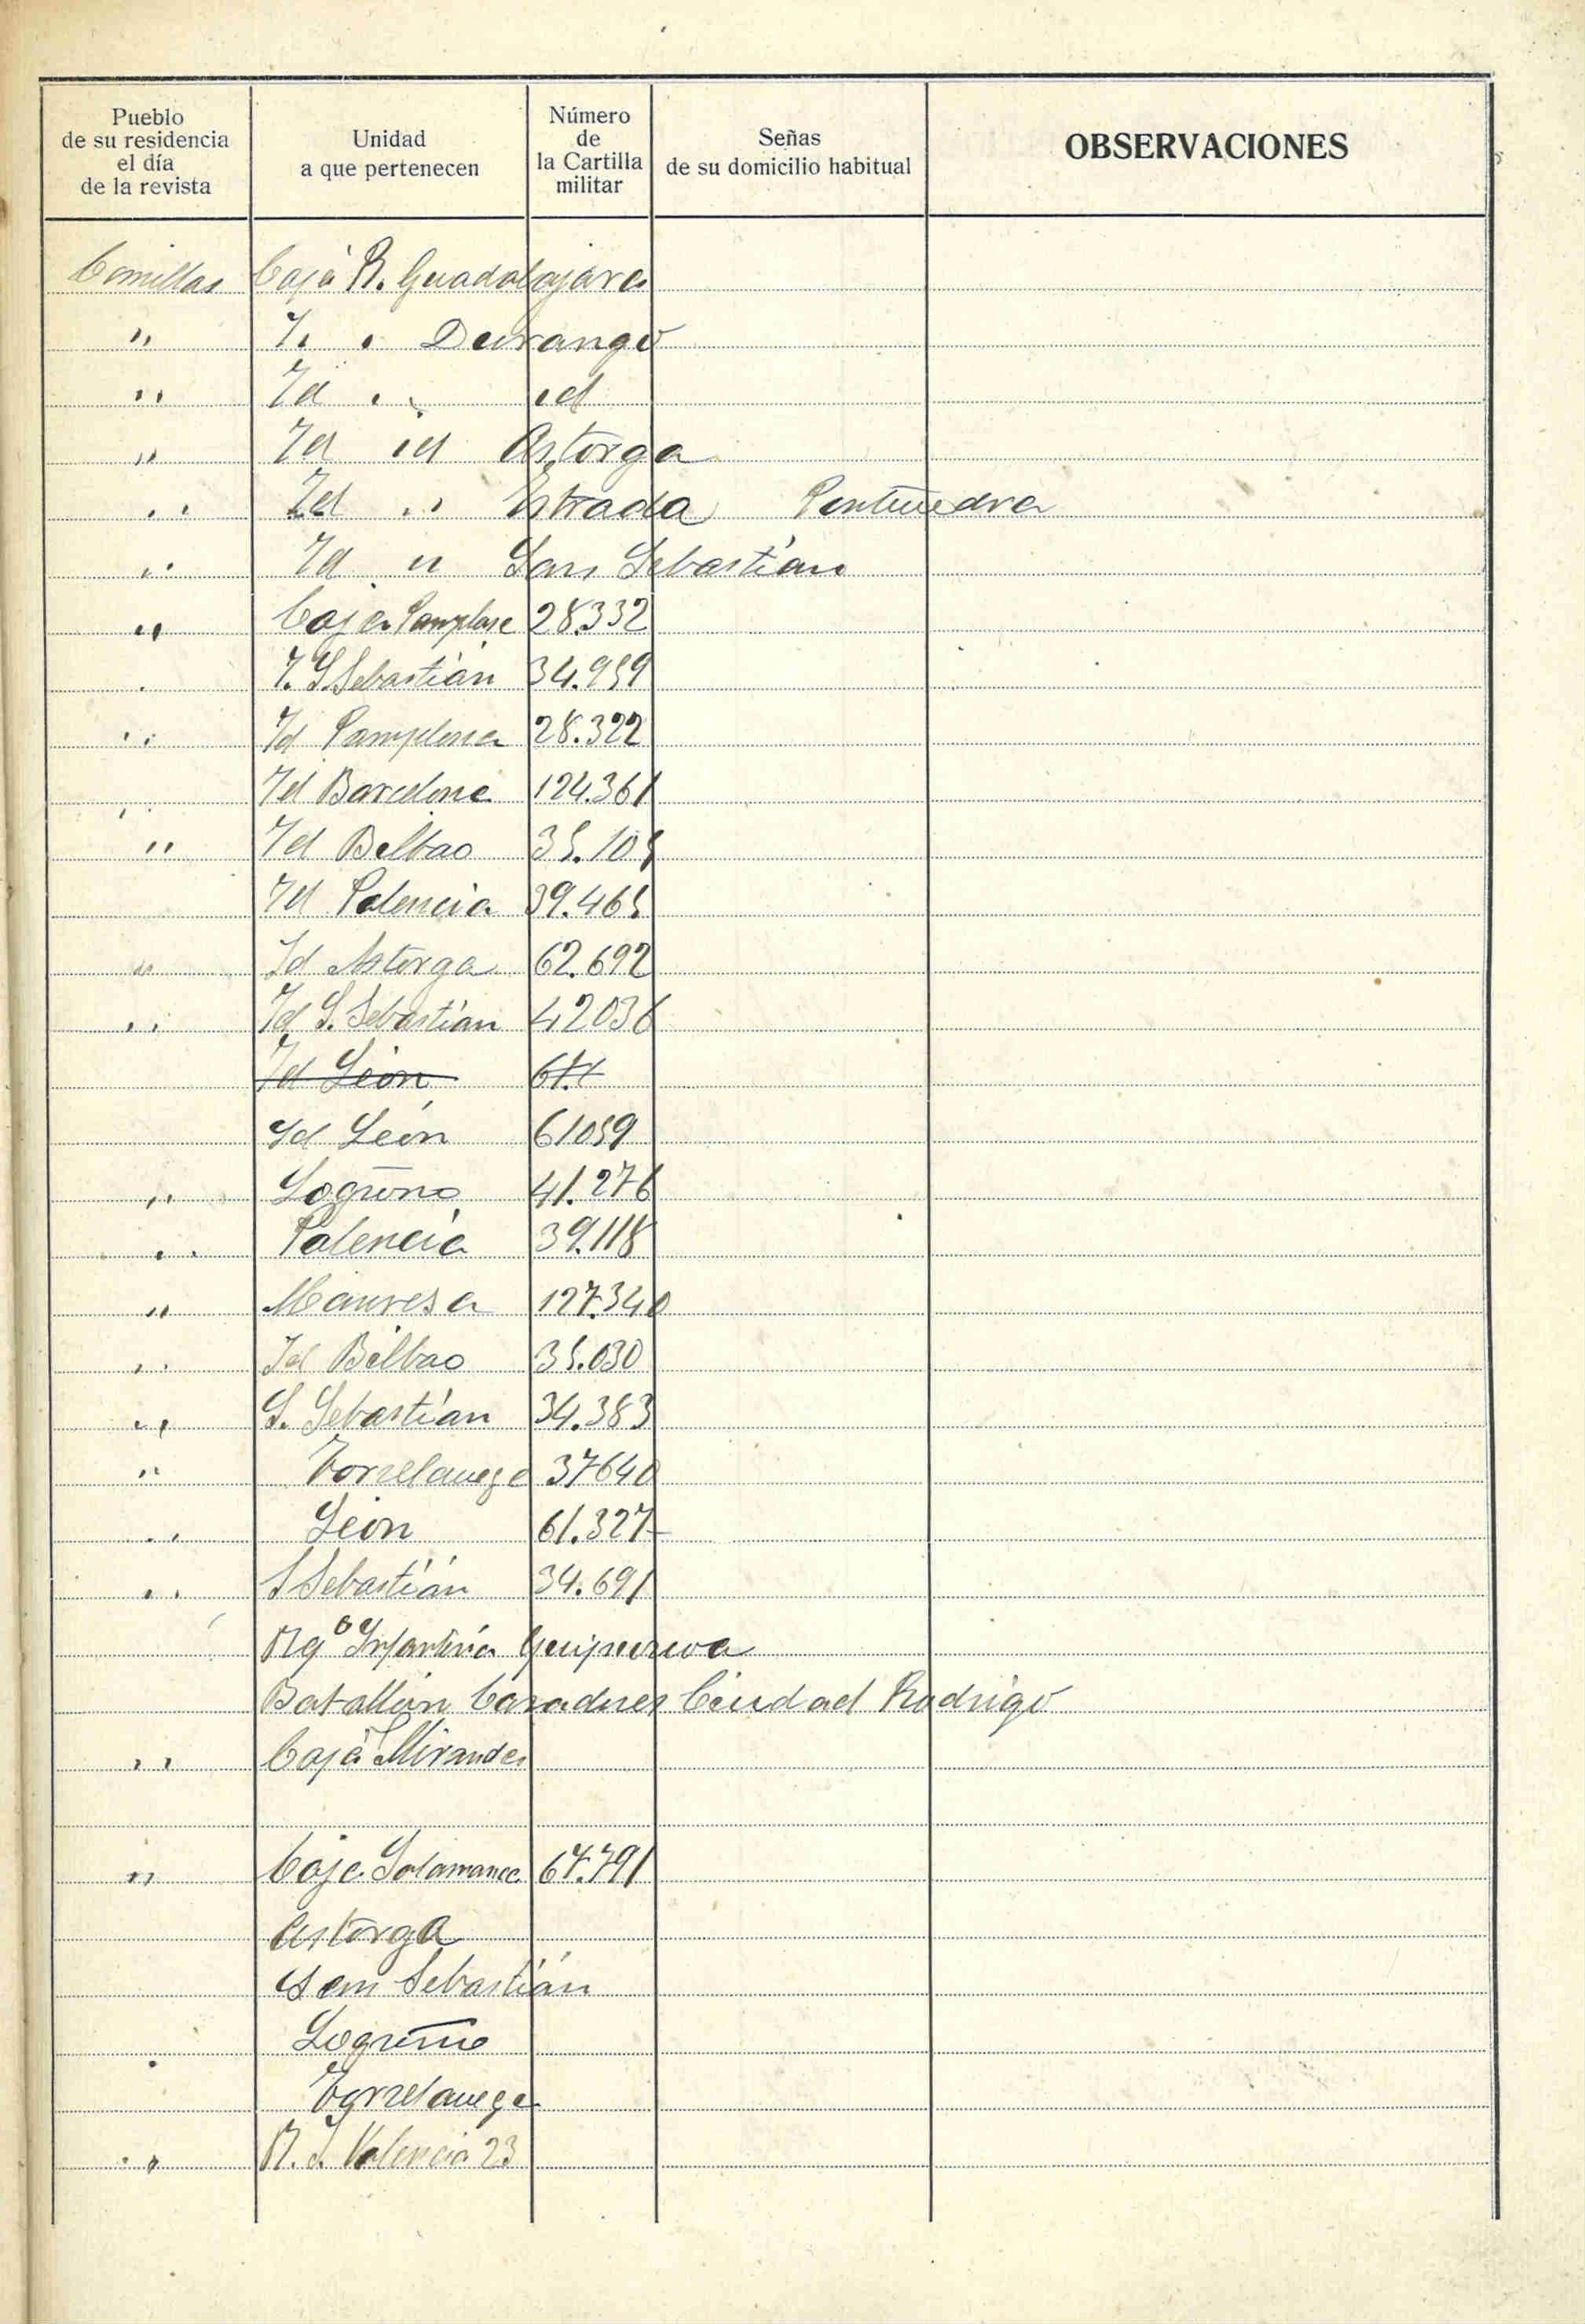 Pueblo
de su residencia
el día
de la revista
Unidad
a que pertenecen
Número
de
la Cartilla
militar
Señas
de su domicilio habitual
OBSERVACIONES
Comillas Caja R. Guadalajara
" I. " Durango
" Id " id
" Id id Astorga
" Id " Estrada Pontevedra
" Id " San Sebastián
" Caja Pamplona 28.332
" I. S. Sebastián 34.959
" Id Pamplona 28.322
" Id Barcelona 124.361
" Id Bilbao 35.105
Id Palencia 39.465
" Id Astorga 62.692
" Id S. Sebastián 42036
Id León
Id León 61059
" Logroño 41.276
" Palencia 39.118
" Manresa 127.340
" Id Bilbao 35.030
" S. Sebastián 34.383
" Torrelavega 37640
" León 61.327
" S Sebastián 34.691
Rgº Infantería Guipuzcoa
Batallón Cazadores Ciudad Rodrigo
" Caja Miranda
" Caja Salamanca 67.791
Astorga
San Sebastián
Logroño
Torrelavega
" R. I. Valencia 23